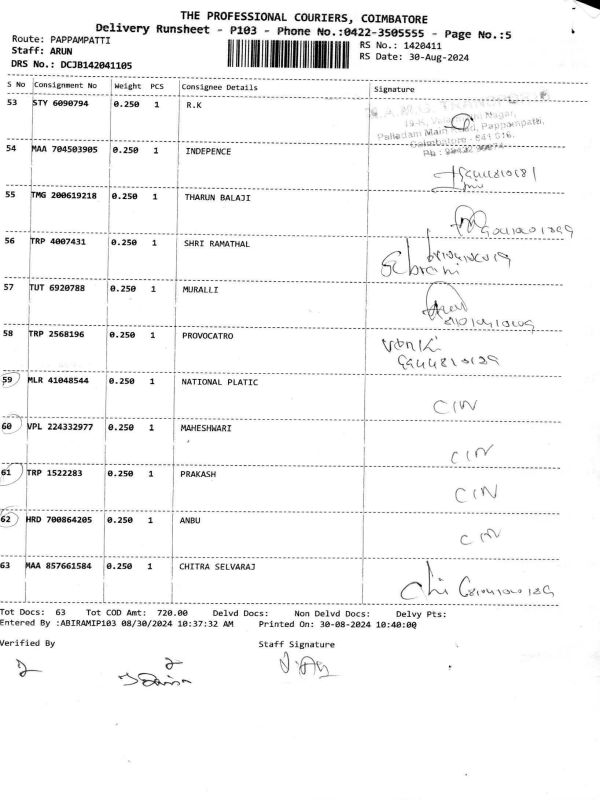 THE PROFESSIONAL COURIERS, COIMBATORE
Delivery Runsheet - P103 - Phone No.:0422-3505555 - Page No.:5
Route: PAPPAMPATTI RS No.: 1420411
Staff: ARUN RS Date: 30-Aug-2024
DRS No.: DCJB142041105
S No Consignment No Weight PCS Consignee Details Signature
53 STY 6090794 0.250 1 R.K
Palladam Main Road, Pappampatti,
54 MAA 704503905 0.250 1 INDEPENCE
55 TMG 200619218 0.250 1 THARUN BALAJI
56 TRP 4007431 0.250 1 SHRI RAMATHAL
57 TUT 6920788 0.250 1 MURALLI
58 TRP 2568196 0.250 1 PROVOCATRO
59 MLR 41048544 0.250 1 NATIONAL PLATIC CIN
60 VPL 224332977 0.250 1 MAHESHWARI CIN
61 TRP 1522283 0.250 1 PRAKASH CIN
62 HRD 700864205 0.250 1 ANBU CIN
63 MAA 857661584 0.250 1 CHITRA SELVARAJ
Tot Docs: 63 Tot COD Amt: 720.00 Delvd Docs: Non Delvd Docs: Delvy Pts:
Entered By :ABIRAMIP103 08/30/2024 10:37:32 AM Printed On: 30-08-2024 10:40:00
Verified By Staff Signature